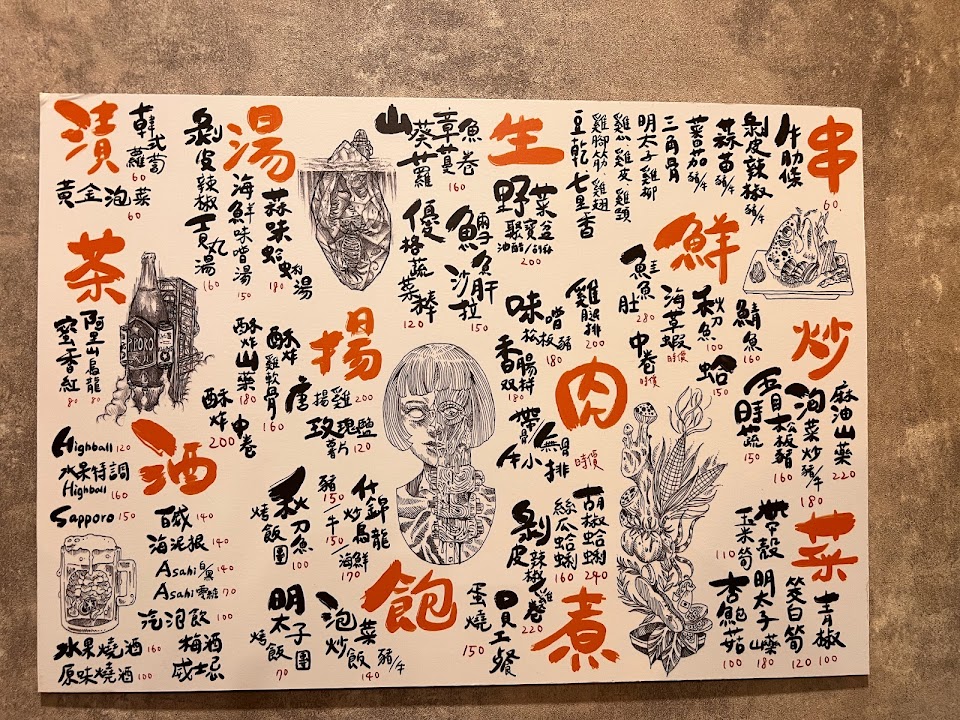 串
牛肋條
剝皮辣椒 豬/牛
蒜苗 豬/牛
蕃茄 豬/牛
三角骨
明太子雞柳
雞心 雞皮 雞頸
雞腳筋 雞翅
豆乾 七里香
60
鮮
鯖魚
160
秋刀魚
100
海草蝦
時價
鮭魚肚
280
中卷
時價
蛤
150
炒
麻油山藥
220
泡菜炒 豬/牛
180
松板豬
160
時蔬
150
菜
青椒
100
筊白筍
120
明太子山藥
180
杏鮑菇
100
帶殼玉米筍
110
生
野菜聚寶盆
油醋/胡麻
200
魚卷
山葵
蘿蔓
160
魚肝沙拉
150
優格蔬菜棒
120
肉
雞腿排
200
味噌松板豬
180
香腸拼双
160
帶骨/無骨牛小排
時價
煮
胡椒蛤蜊
240
絲瓜蛤蜊
160
剝皮辣椒雞卷
220
員工餐
蛋燒
150
湯
蒜味蛤蜊湯
180
海鮮味噌湯
150
剝皮辣椒貢丸湯
160
揚
唐揚雞
200
玫瑰鹽薯片
120
酥炸雞軟骨
160
酥炸山藥
180
酥炸中卷
200
飽
什錦炒烏龍
豬150/牛150/海鮮170
秋刀魚烤飯團
100
泡菜炒飯 豬/牛
140
明太子烤飯團
70
漬
韓式蘿蔔
60
黃金泡菜
60
茶
阿里山烏龍
80
蜜香紅
80
酒
Highball 120
水果特調
Highball 160
Sapporo 150
百威 140
海尼根 140
Asahi 140
Asahi 零糖 70
汽泡飲 100
水果燒酒 160
梅酒
原味燒酒 100
威士忌